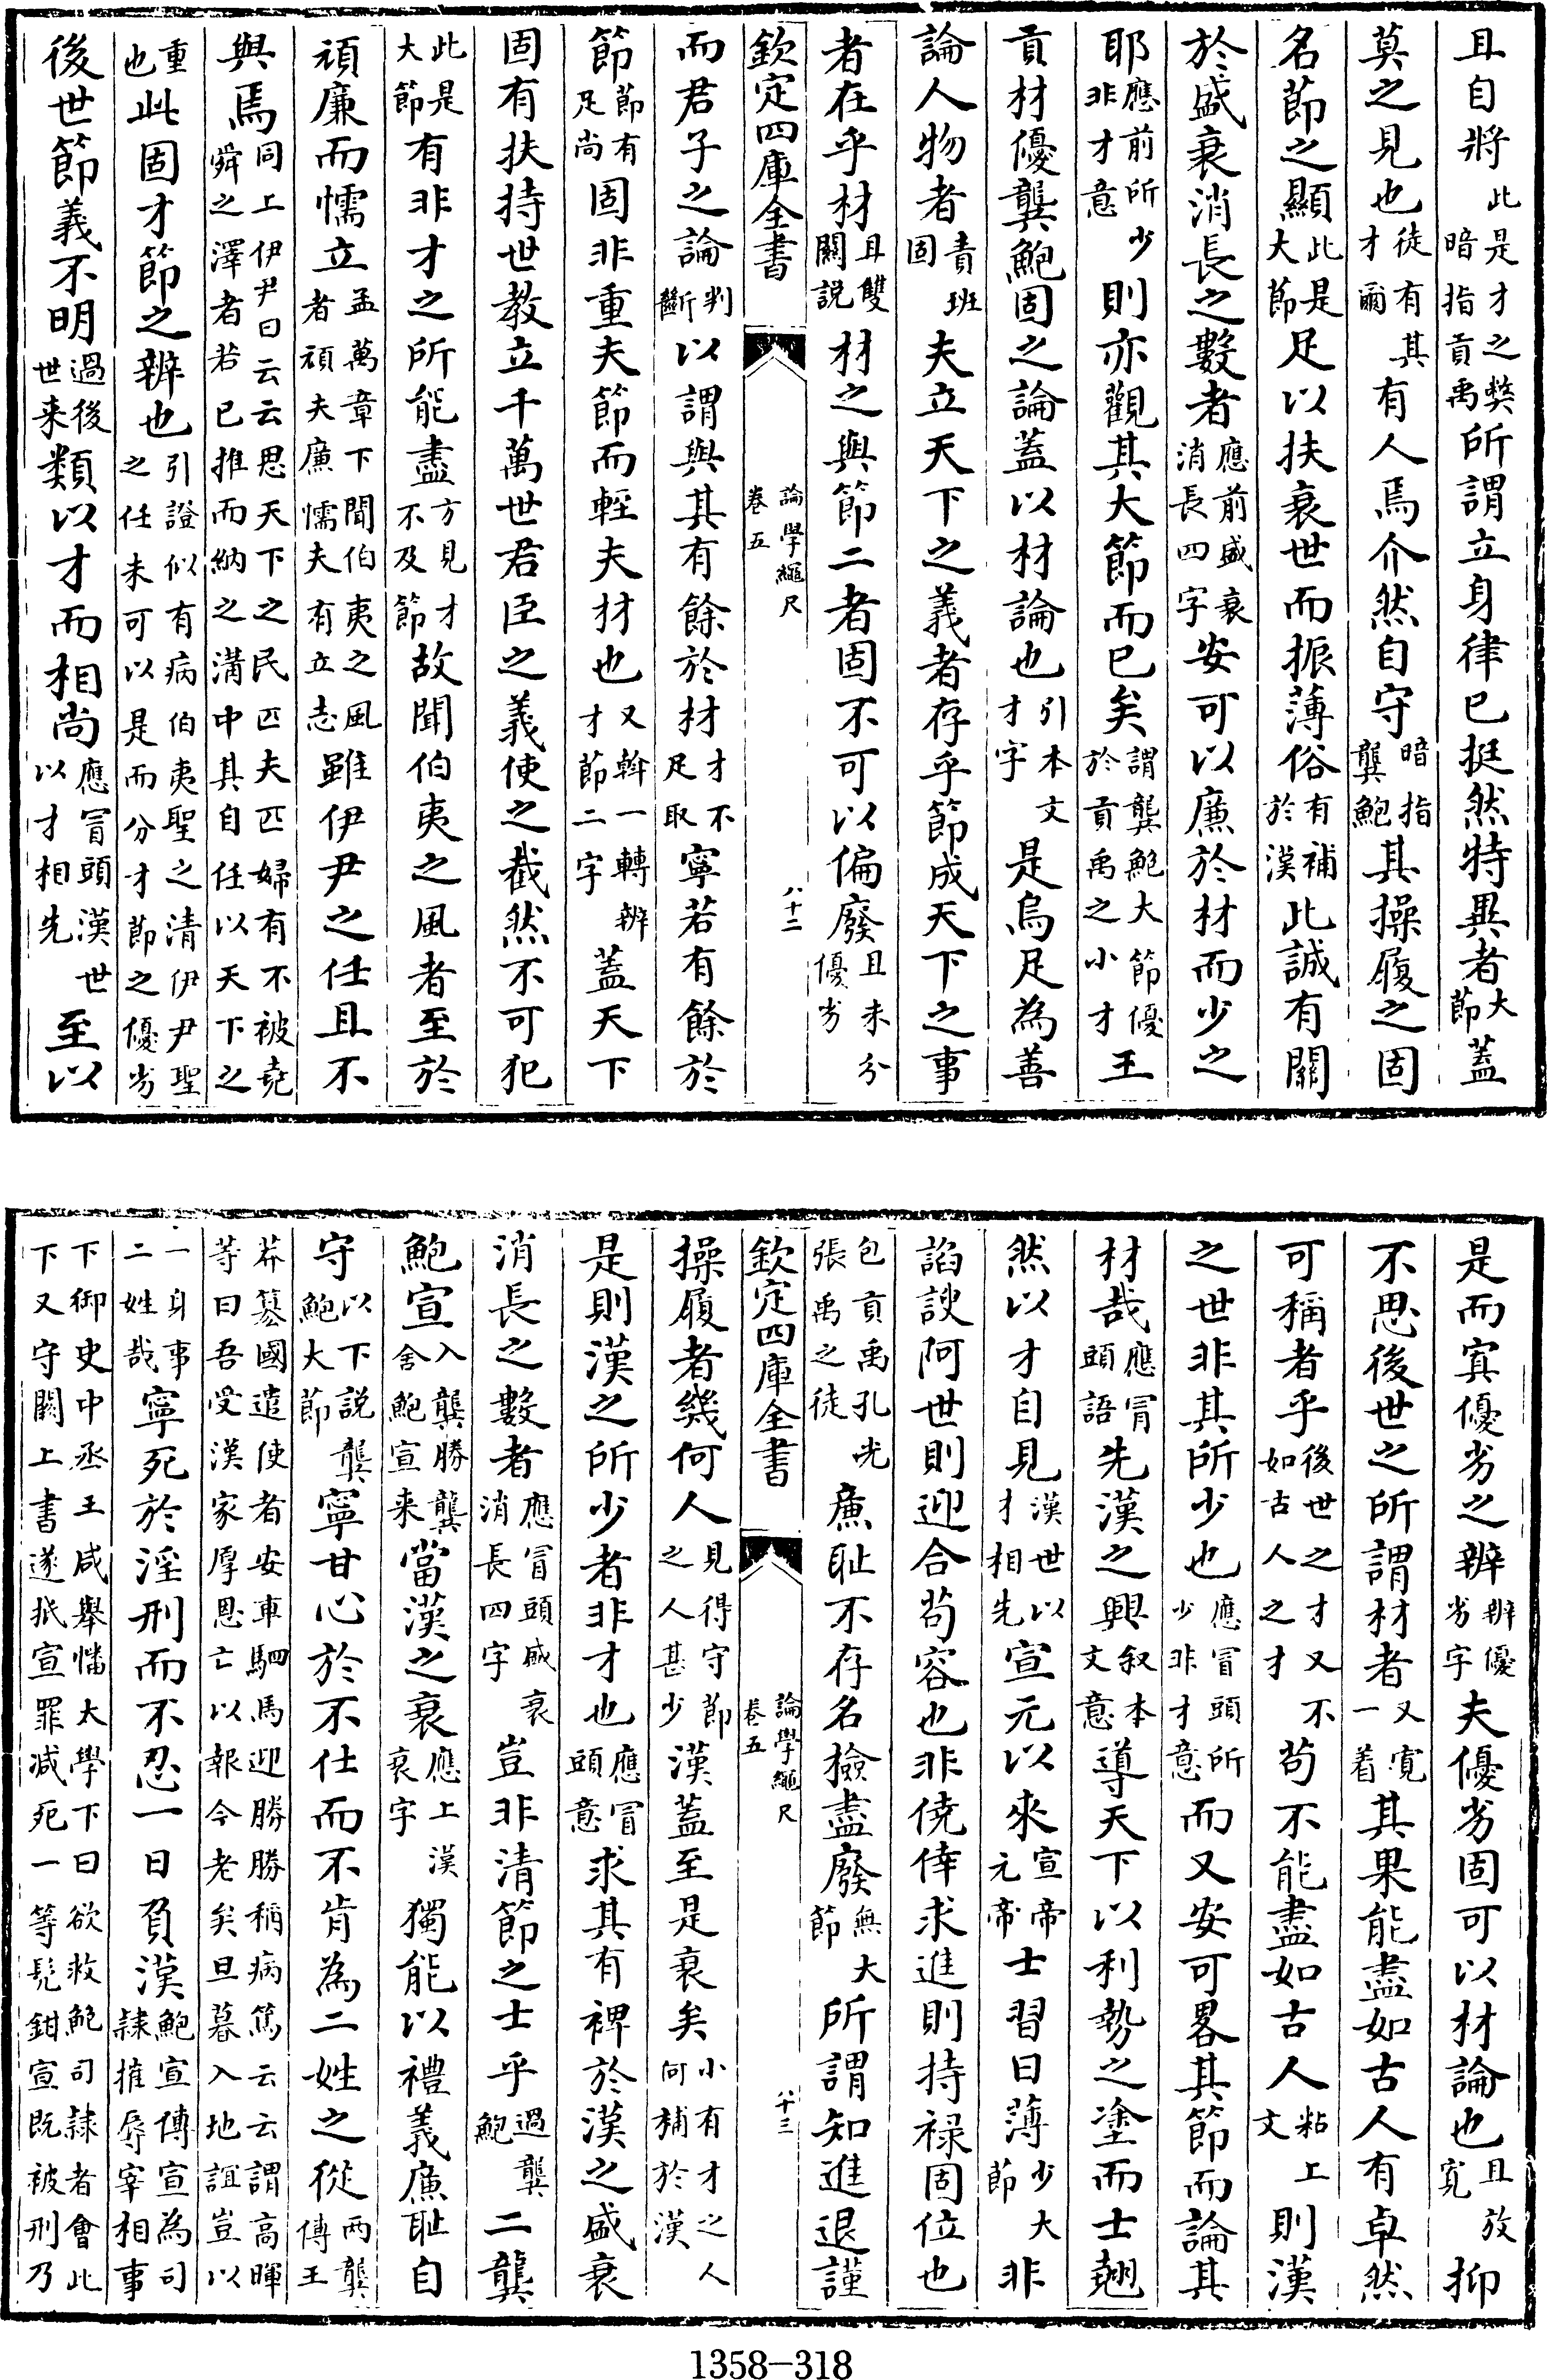 且自將此是才之獘暗指貢禹所謂立身律已挺然特異者大節蓋
莫之見也徒有其才爾有人焉介然自守暗指龔鮑其操履之固
名節之顯此是大節足以扶衰世而振薄俗有補於漢此誠有關
於盛衰消長之數者應前盛衰消長四字安可以廉於材而少之
耶應前所少非才意則亦觀其大節而已矣謂龔鮑大節優於貢禹之小才王
貢材優龔鮑固之論蓋以材論也引本文才字是烏足為善
論人物者責班固夫立天下之義者存乎節成天下之事
者在乎材且雙關説材之與節二者固不可以偏廢且未分優劣
欽定四庫全書
論學繩尺
卷五
八十二
而君子之論判斷以謂與其有餘於材才不足取寧若有餘於
節節有足尚固非重夫節而輕夫材也又斡一轉辨才節二字蓋天下
固有扶持世教立千萬世君臣之義使之截然不可犯
此是大節有非才之所能盡方見才不及節故聞伯夷之風者至於
頑廉而懦立孟萬章下聞伯夷之風者頑夫廉懦夫有立志雖伊尹之任且不
與焉同上伊尹曰云云思天下之民匹夫匹婦有不被堯舜之澤者若已推而納之溝中其自任以天下之
重也此固才節之辨也引證似有病伯夷聖之清伊尹聖之任未可以是而分才節之優劣
後世節義不明過後世来類以才而相尚應冒頭漢世以才相先至以
是而寘優劣之辨辨優劣字夫優劣固可以材論也且放寬抑
不思後世之所謂材者又寛一着其果能盡如古人有卓然
可稱者乎後世之才又不如古人之才苟不能盡如古人粘上文則漢
之世非其所少也應冒頭所少非才意而又安可畧其節而論其
材哉應冒頭語先漢之興叙本文意導天下以利勢之塗而士翹
然以才自見漢世以才相先宣元以來宣帝元帝士習日薄少大節非
諂諛阿世則迎合苟容也非僥倖求進則持禄固位也
包貢禹孔光張禹之徒廉恥不存名檢盡廢無大節所謂知進退謹
欽定四庫全書
論學繩尺
卷五
八十三
操履者幾何人見得守節之人甚少漢蓋至是衰矣小有才之人何補於漢
是則漢之所少者非才也應冒頭意求其有裨於漢之盛衰
消長之數者應冒頭盛衰消長四字豈非清節之士乎過龔鮑二龔
鮑宣入龔勝龔舍鮑宣来當漢之衰應上漢衰字獨能以禮義廉恥自
守以下説龔鮑大節寧甘心於不仕而不肯為二姓之從兩龔傳王
莽簒國遣使者安車駟馬迎勝勝稱病篤云云謂高暉等曰吾受漢家厚恩亡以報今老矣旦暮入地誼豈以
一身事二姓哉寧死於淫刑而不忍一日負漢鮑宣傳宣為司隷摧辱宰相事
下御史中丞王咸舉幡大學下曰欲救鮑司隷者會此下又守闕上書遂抵宣罪減死一等髠鉗宣既被刑乃
1358-318